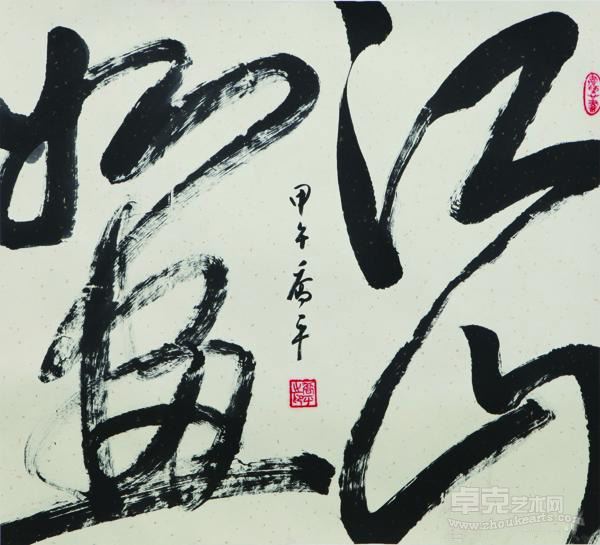 江山
如画
甲午 乔平
卓克艺术网
www.zhoukearts.com